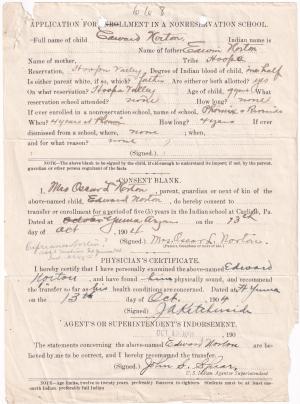 1668
APPLICATION FOR ENROLLMENT IN A NONRESERVATION SCHOOL.
Full name of child Edward Norton. Indian name is
Name of father Edwin Norton
Name of mother, Tribe Hoopa
Reservation, Hoopa Valley Degree of Indian blood of child, one half
Is either parent white, if so, which? father Are either or both allotted? yes
On what reservation? Hoopa Valley Age of child, years. What
reservation school attended? none How long? none
If ever enrolled in a nonreservation school, name of school Phoenix &
When? 4 years at How long? 4 years If ever
dismissed from a school, where, none ; when,
and for what reason? none
(Signed.)
NOTE.—The above blank to be signed by the child, if old enough to understand its import; if not, by the parent, guardian or other person cognizant of the facts.
CONSENT BLANK.
I, Mrs Oscar L. Norton, parent, guardian or next of kin of the
above-named child, Edward Norton, do hereby consent to
transfer or enrollment for a period of five (5) years in the Indian school at Carlisle, Pa.
Dated at Yuma on the 13th
day of Oct, 1904
(Signed.) Mrs. Oscar L. Norton.
(Parent, Guardian or Next of kin.)
PHYSICIAN'S CERTIFICATE.
I hereby certify that I have personally examined the above-named Edward
Norton and have found him physically sound, and recommend
the transfer so far as his health conditions are concerned. Dated at Ft Yuma
on the 13th day of Oct. 1904
(Signed.)
AGENT'S OR SUPERINTENDENT'S INDORSEMENT.
190
The statements concerning the above-named Edward Norton are be-
lieved by me to be correct, and I hereby recommend the transfer.
(Signed.) John S. Spear,
U. S. Indian Agent or Superintendent
NOTE.—Age limits, twelve to twenty years, preferably fourteen to eighteen. Students must be at least one-fourth Indian, preferably full Indian